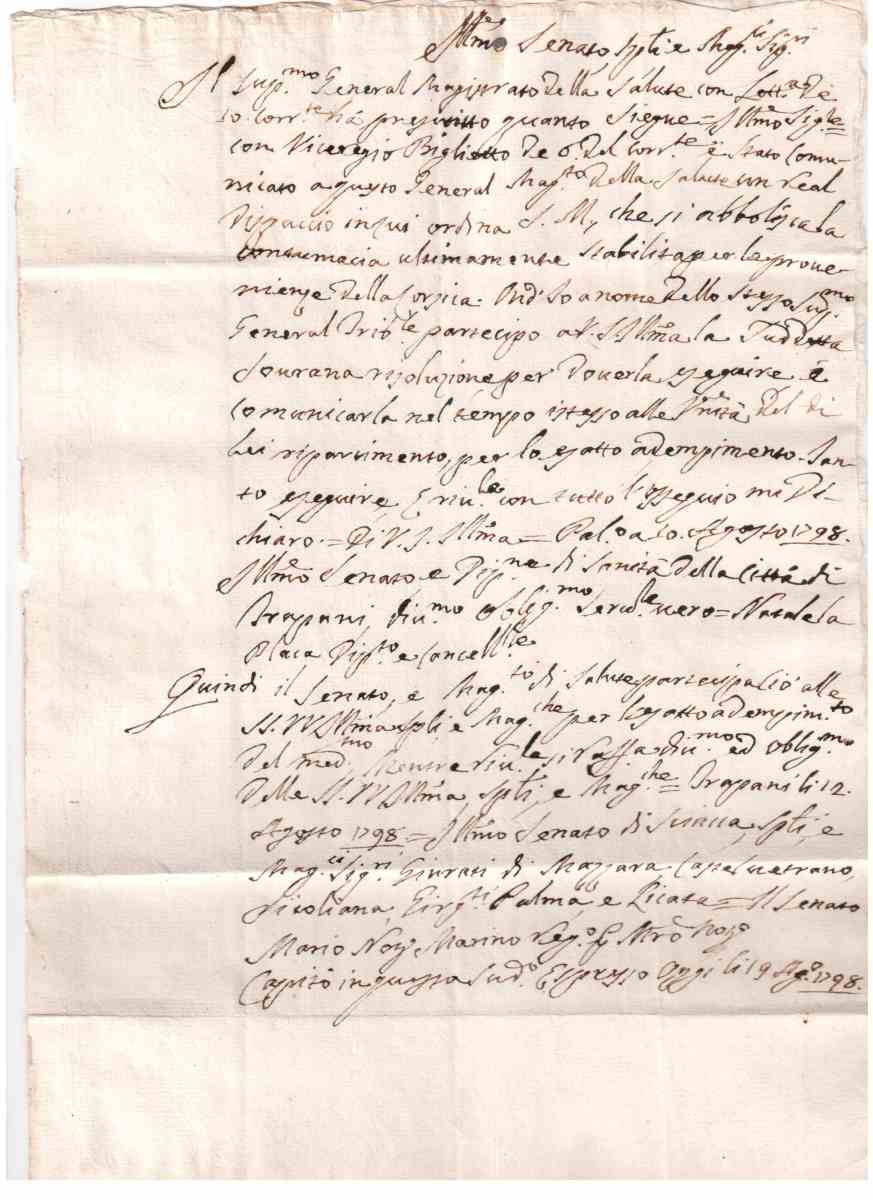 Ill.mo Senato, Sp.li e Mag.ci Sig.ri
Il Sup.mo General Magistrato della Salute con Lett.a de
10. Corr.te ha prescritto quanto siegue = Ill.mo Sig.re =
con Viceregio Biglietto de 6. del corr.te è stato comu-
nicato a questo General Mag.to della Salute un Real
Dispaccio in cui ordina S. M., che si abbolisca la
contumacia ultimamente stabilita per le prove-
nienze della Corsica. Ind'io a nome dello stesso Sup.mo
General Trib.le partecipo a V. S. Ill.ma la sudetta
Sovrana risoluzione per doverla eseguire, e
comunicarla nel tempo istesso alle del di
Lei ripartimento, per lo esatto adempimento. Tan-
to eseguire, e riv.le con tutto l'ossequio mi di-
chiaro. = Di V. S. Ill.ma = Pal.o a 10. Agosto 1798.
Ill.mo Senato e Dep.ne di Sanità della Città di
Trapani, div.mo obblig.mo serv.le vero = Natale la
Placa Dep.to e Cancell.re
Quindi il Senato, e Mag.to di Salute partecipa ciò alle
SS. VV. Ill.ma Sp.li, e Mag.che per lo esatto adempim.to
del med.mo Mentre riv.le si rassa div.mo ed obblig.mo
delle SS. VV. Ill.ma Sp.li, e Mag.che = Trapani li 12.
Agosto 1798 = Ill.mo Senato di Sciacca, Sp.li, e
Mag.ci Sig.ri Giurati di Mazzara, Castelvetrano,
Siculiana, Girg.ti, Palma, e Licata = Il Senato
Mario Not.r Marino Reg.o Mro Not.o
Capitò in questa sud.o Espresso oggi li 19 Ag.o 1798.